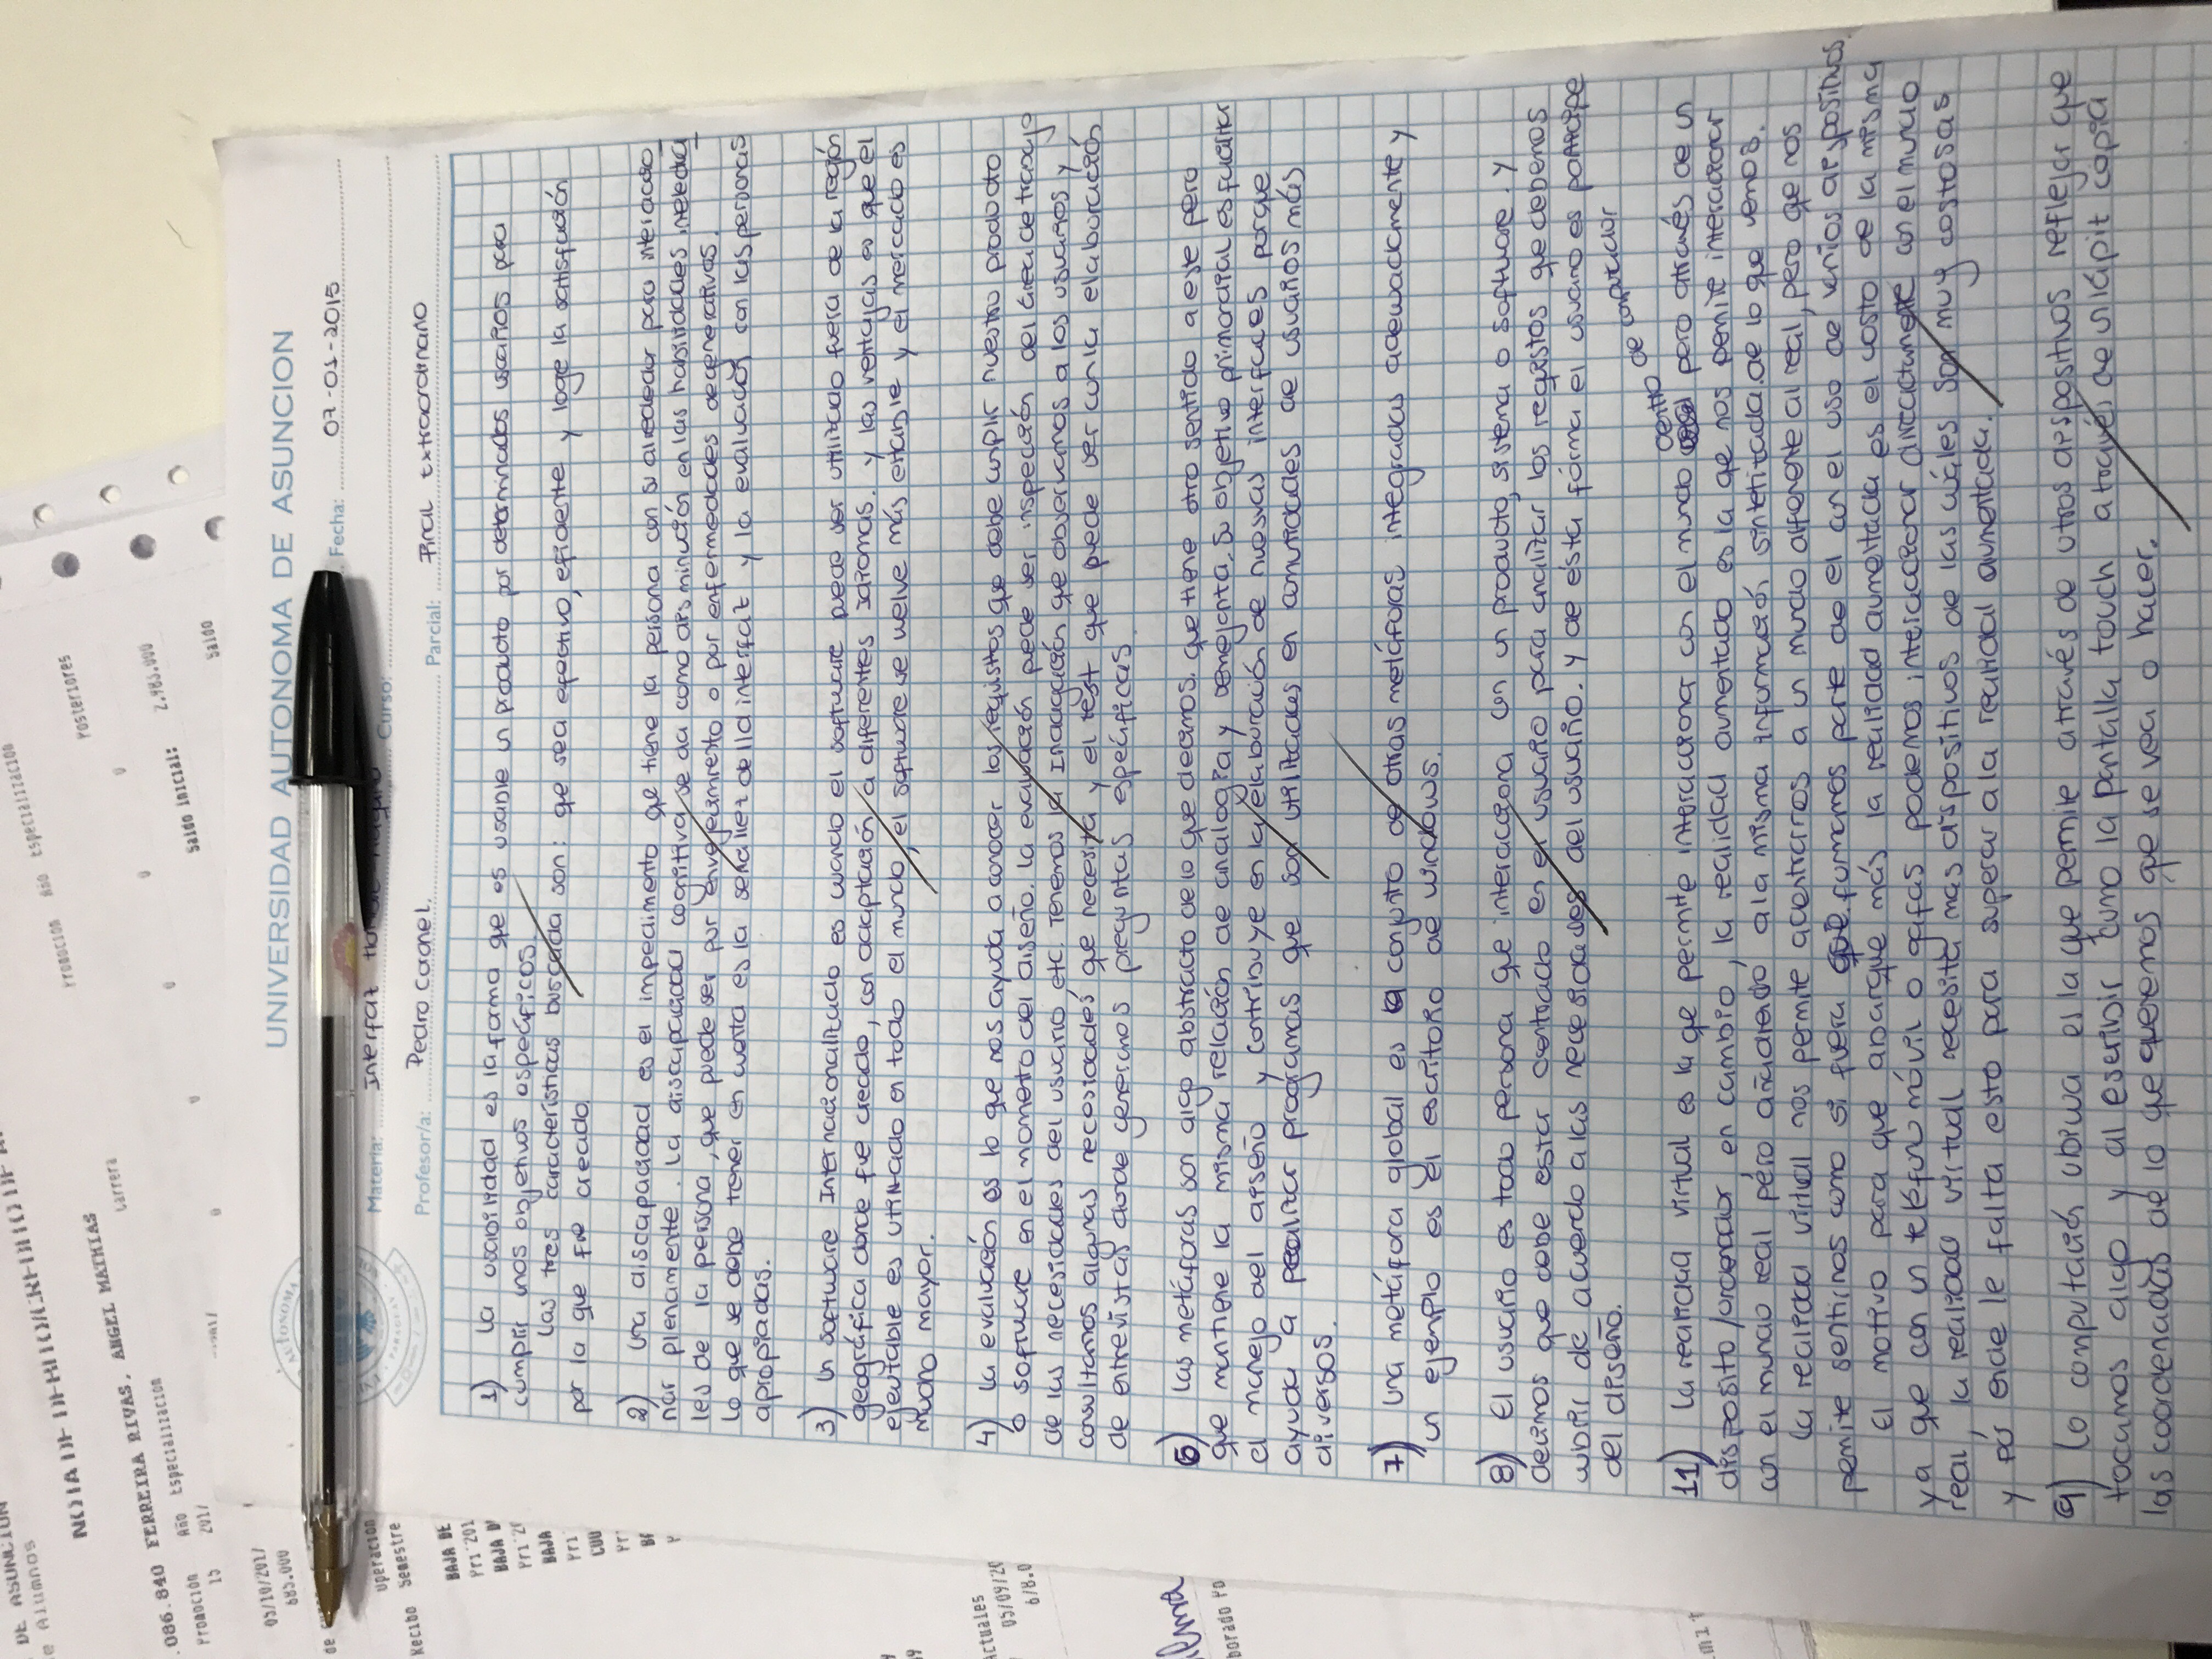 DE ASUNCION
e Alumnos
NOTA DE DEBITO/CREDITO DE A
.086.840 FERREIRA RIVAS, ANGEL MATHIAS
Carrera
Promocion Año Especializacion
Posteriores
Promoción Año Especializacion
15 201/
0 0 0 0
Saldo inicial: 2.985.000
Saldo
05/10/201/
685.000
de
Operacion
Recibo Semestre
BAJA DE
Pri'201
BAJA D
Pri'2
BAJA
Pri
CUO
Pr
Actuales
05/09/20
6/8.0
borado Po
UNIVERSIDAD AUTONOMA DE ASUNCION
AUTONOMA
PARAGUAY
Fecha: 07-01-2015
Materia: Interfaz Curso:
Profesor/a: Pedro Coronel. Parcial: Final Extraordinario
1) La usabilidad es la forma que es usable un producto por determinados usuarios para
cumplir unos objetivos específicos.
Las tres características buscada son: qe sea efectivo, eficiente y loge la satisfacción
por la que fue creado.
2) Una discapacidad es el impedimento qe tiene la persona con su alrededor para interaccio
nar plenamente. La discapacidad cognitiva se da como disminución en las habilidades intelectua
les de la persona, que puede ser por envejecimiento o por enfermedades degenerativas.
Lo que se debe tener en cuenta es la de la interfaz y la evaluación con las personas
apropiadas.
3) Un software Internacionalizado es cuando el software puede ser utilizado fuera de la región
geográfica donde fue creado, con adaptación a diferentes Idiomas. y las ventajas es que el
ejecutable es utilizado en todo el mundo, el software se vuelve más estable y el mercado es
mucho mayor.
4) La evaluación es lo que nos ayuda a conocer los requisitos que debe cumplir nuestro producto
o software en el momento del diseño. La evaluación puede ser inspección del área de trabajo
de las necesidades del usuario etc. Tenemos la Indagación qe observamos a los usuarios y
consultamos algunas necesidades que necesita y el test que puede ser con la elaboración
de entrevistas donde preguntas específicas.
6) Las metáforas son algo abstracto de lo que decimos. que tiene otro sentido a este pero
que mantiene la misma relación de analogía y semejanza. Su objetivo primordial es facilitar
el manejo del diseño y contribuye en la elaboración de nuevas interfaces porque
ayuda a realizar programas que son utilizadas en comunidades de usuarios más
diversos.
7) Una metáfora global es conjunto de otras metáforas integradas adecuadamente y
un ejemplo es el escritorio de windows.
8) El usuario es todo persona que interacciona con un producto, sistema o software. y
decimos que debe estar centrado en el usuario para analizar los requisitos que debemos
cubrir de acuerdo a las necesidades del usuario. y de ésta fórma el usuario es participe
del diseño.
11) La realidad virtual es la qe permite interaccionar con el mundo dentro de computador pero através de un
disposito/ordenador en cambio, la realidad aumentado es la qe nos permite interaccionar
con el mundo real pero añadiendo a la misma información sintetizada de lo que vemos.
La realidad virtual nos permite adentrarnos a un mundo diferente al real, pero qe nos
permite sentirnos como si fuera que formamos parte de el con el uso de varios dispositivos.
El motivo para que abarque más la realidad aumentada es el costo de la misma
ya que con un teléfono móvil o gafas podemos interaccionar directamente con el mundo
real, la realidad virtual necesita más dispositivos de las cuáles son muy costosas
y por ende le falta esto para superar a la realidad aumentada.
9) La computación ubicua es la que permite através de otros dispositivos reflejar que
tocamos algo y al escribir como la pantalla touch através de un lápiz copia
las coordenadas de lo qe queremos que se vea o hacer.